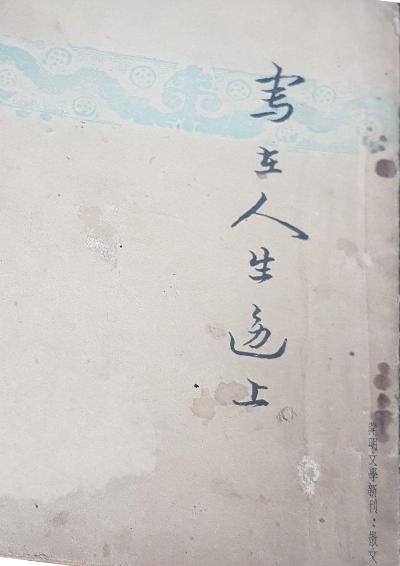 写在人生边上
開明文學新刊：散文